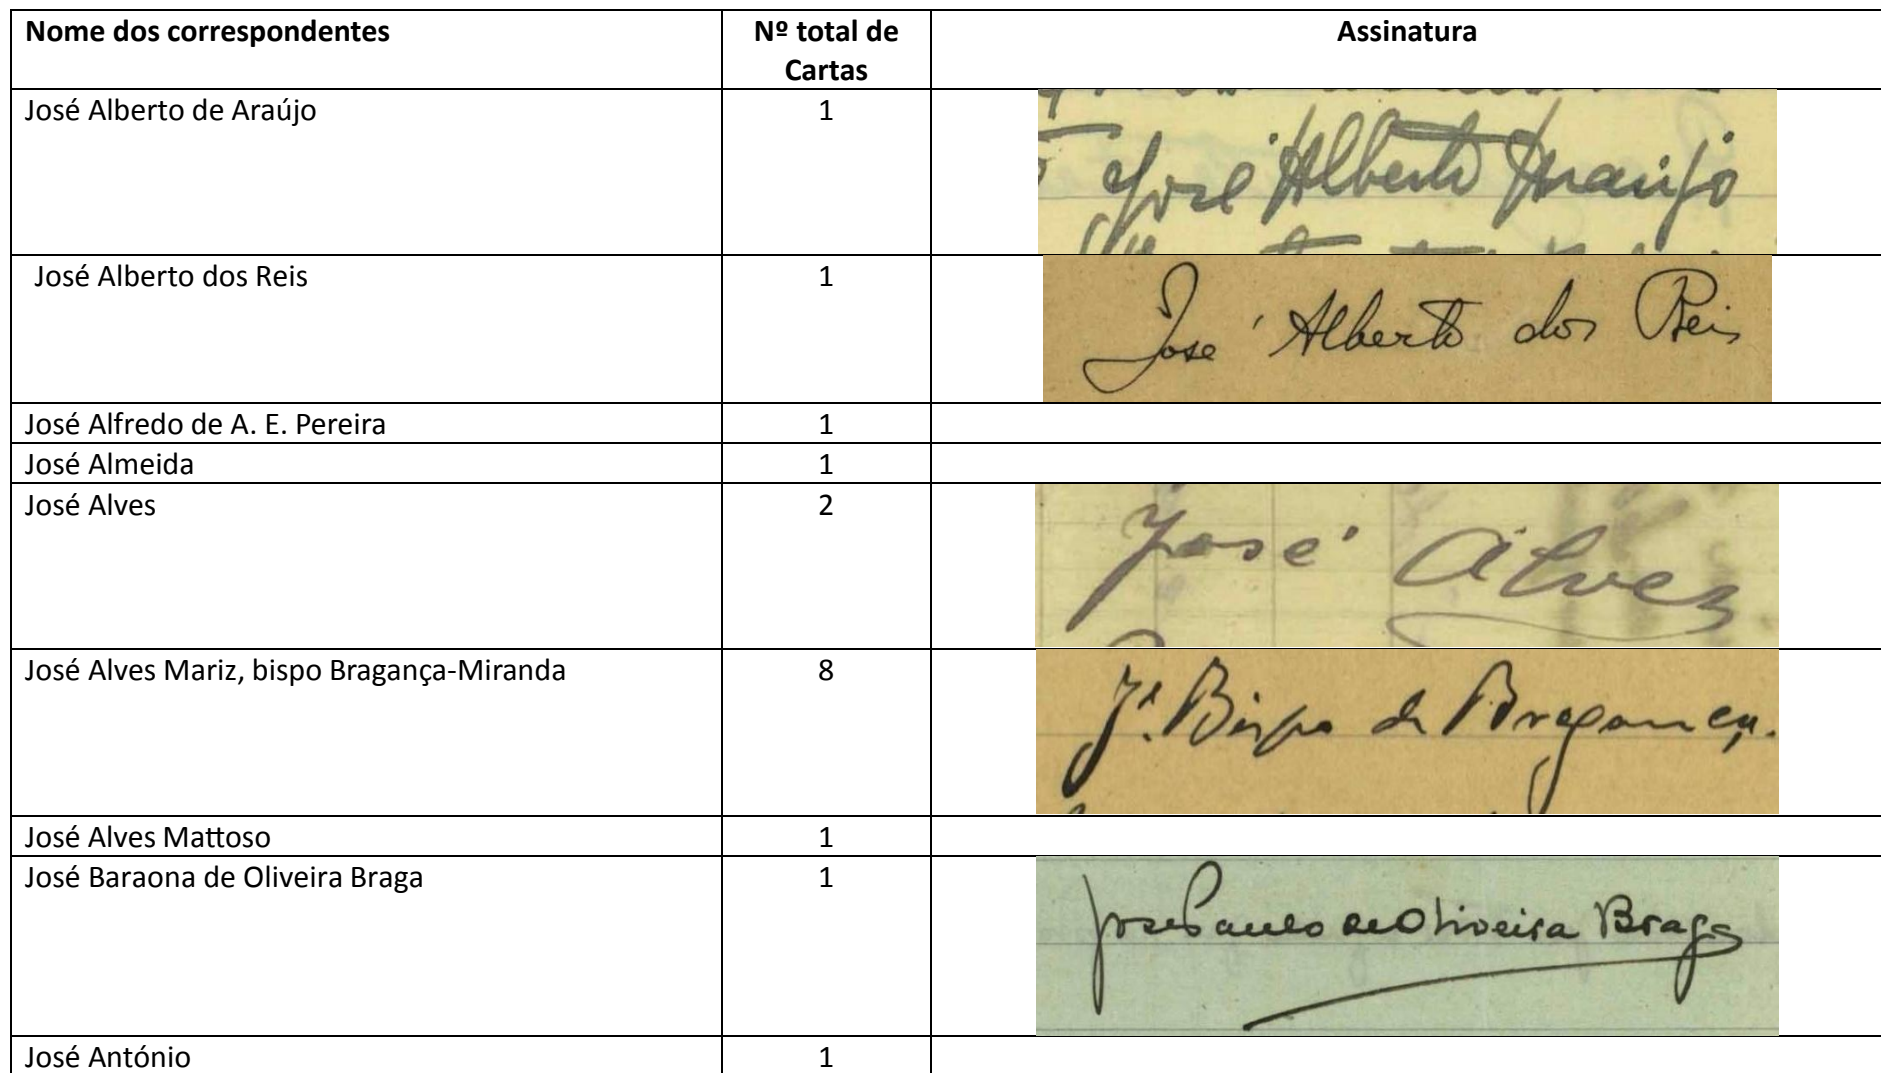 Nome dos correspondentes
Nº total de
Cartas
Assinatura
José Alberto de Araújo
1
José Alberto Araújo
José Alberto dos Reis
1
José Alberto dos Reis
José Alfredo de A. E. Pereira
1
José Almeida
1
José Alves
2
José Alves
José Alves Mariz, bispo Bragança-Miranda
8
J. Bispo de Bragança.
José Alves Mattoso
1
José Baraona de Oliveira Braga
1
José Paulo de Oliveira Braga
José António
1